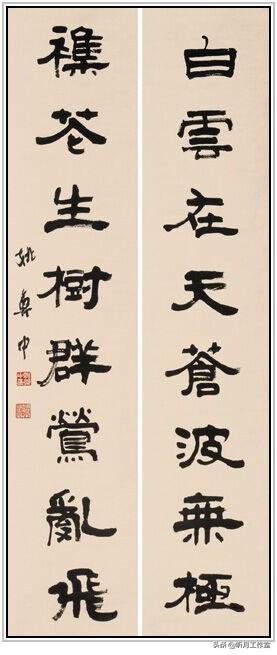 白雲在天蒼波無極
襍花生樹群鶯亂飛
姚奠中
头条@听月工作室